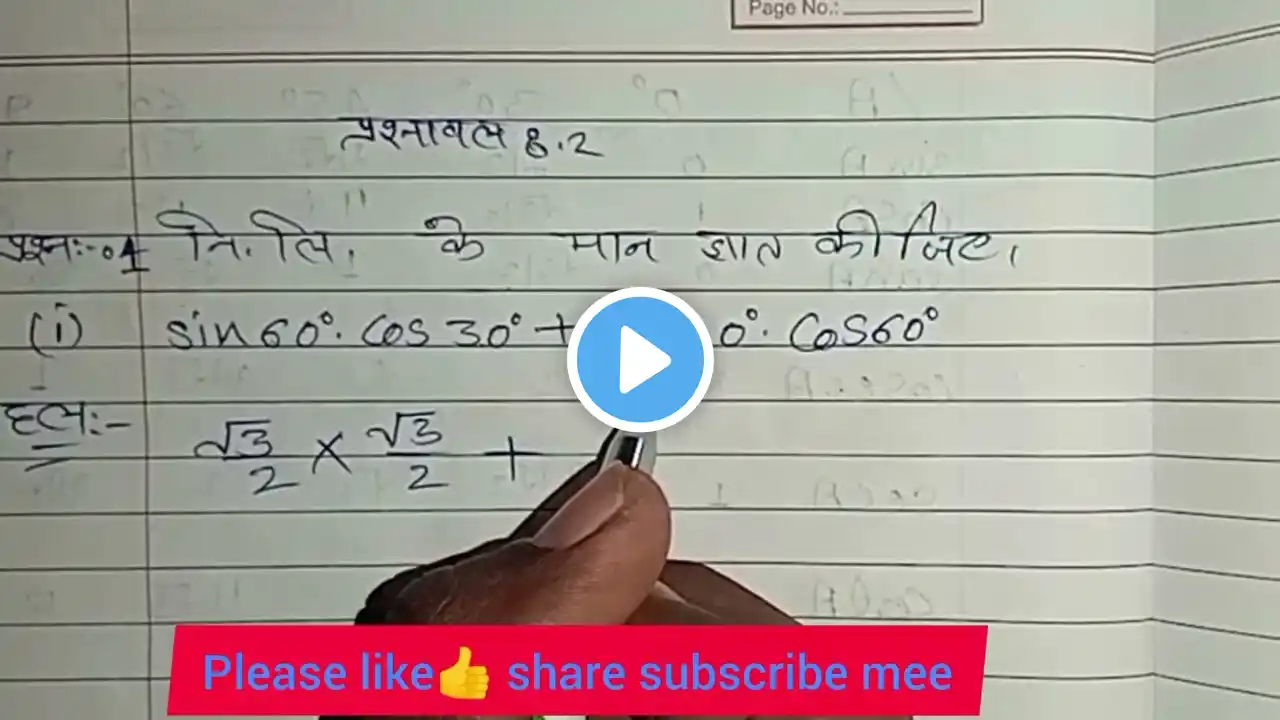 Page No.:
प्रश्नावल 8.2
प्रश्नः-01 नि.लि. के मान ज्ञात कीजिए।
(i) sin60°. Cos 30° + 0°. Cos60°
हलः- √3/2 × √3/2 +
Please like👍 share subscribe mee